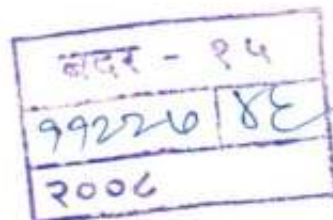 बदर - १५
११२२७ ४६
२००८